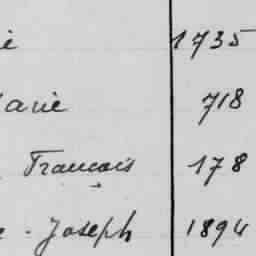 e 1735
arie 718
Francois 178
e - Joseph 1894